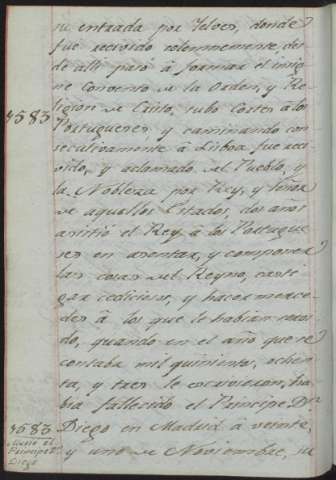 su entrada por Yelves, donde
fue recivido solemnemente, des
de alli pasó à formar el insig
ne Convento de la Orden, y Re
ligion de Cristo, tubo Cortes à los
1583
Portugueses, y caminando con
secutivamente à Lisboa fue reci
vido, y aclamado del Pueblo, y
la Nobleza por Rey, y Señor
de aquellos Estados, dos años
asistió el Rey à los Portugue
ses en asentar, y componer
las cosas del Reyno, casti
gar sediciosos, y hacer merce
des à los que le habian
do, quando en el año que se
contaba mil quinientos, ochen
ta, y tres le escrivieron, ha
bia fallecido el Principe Dn
1583
Diego en Madrid à veinte,
Murio el
Principe Dn
Diego
y uno de Noviembre, su